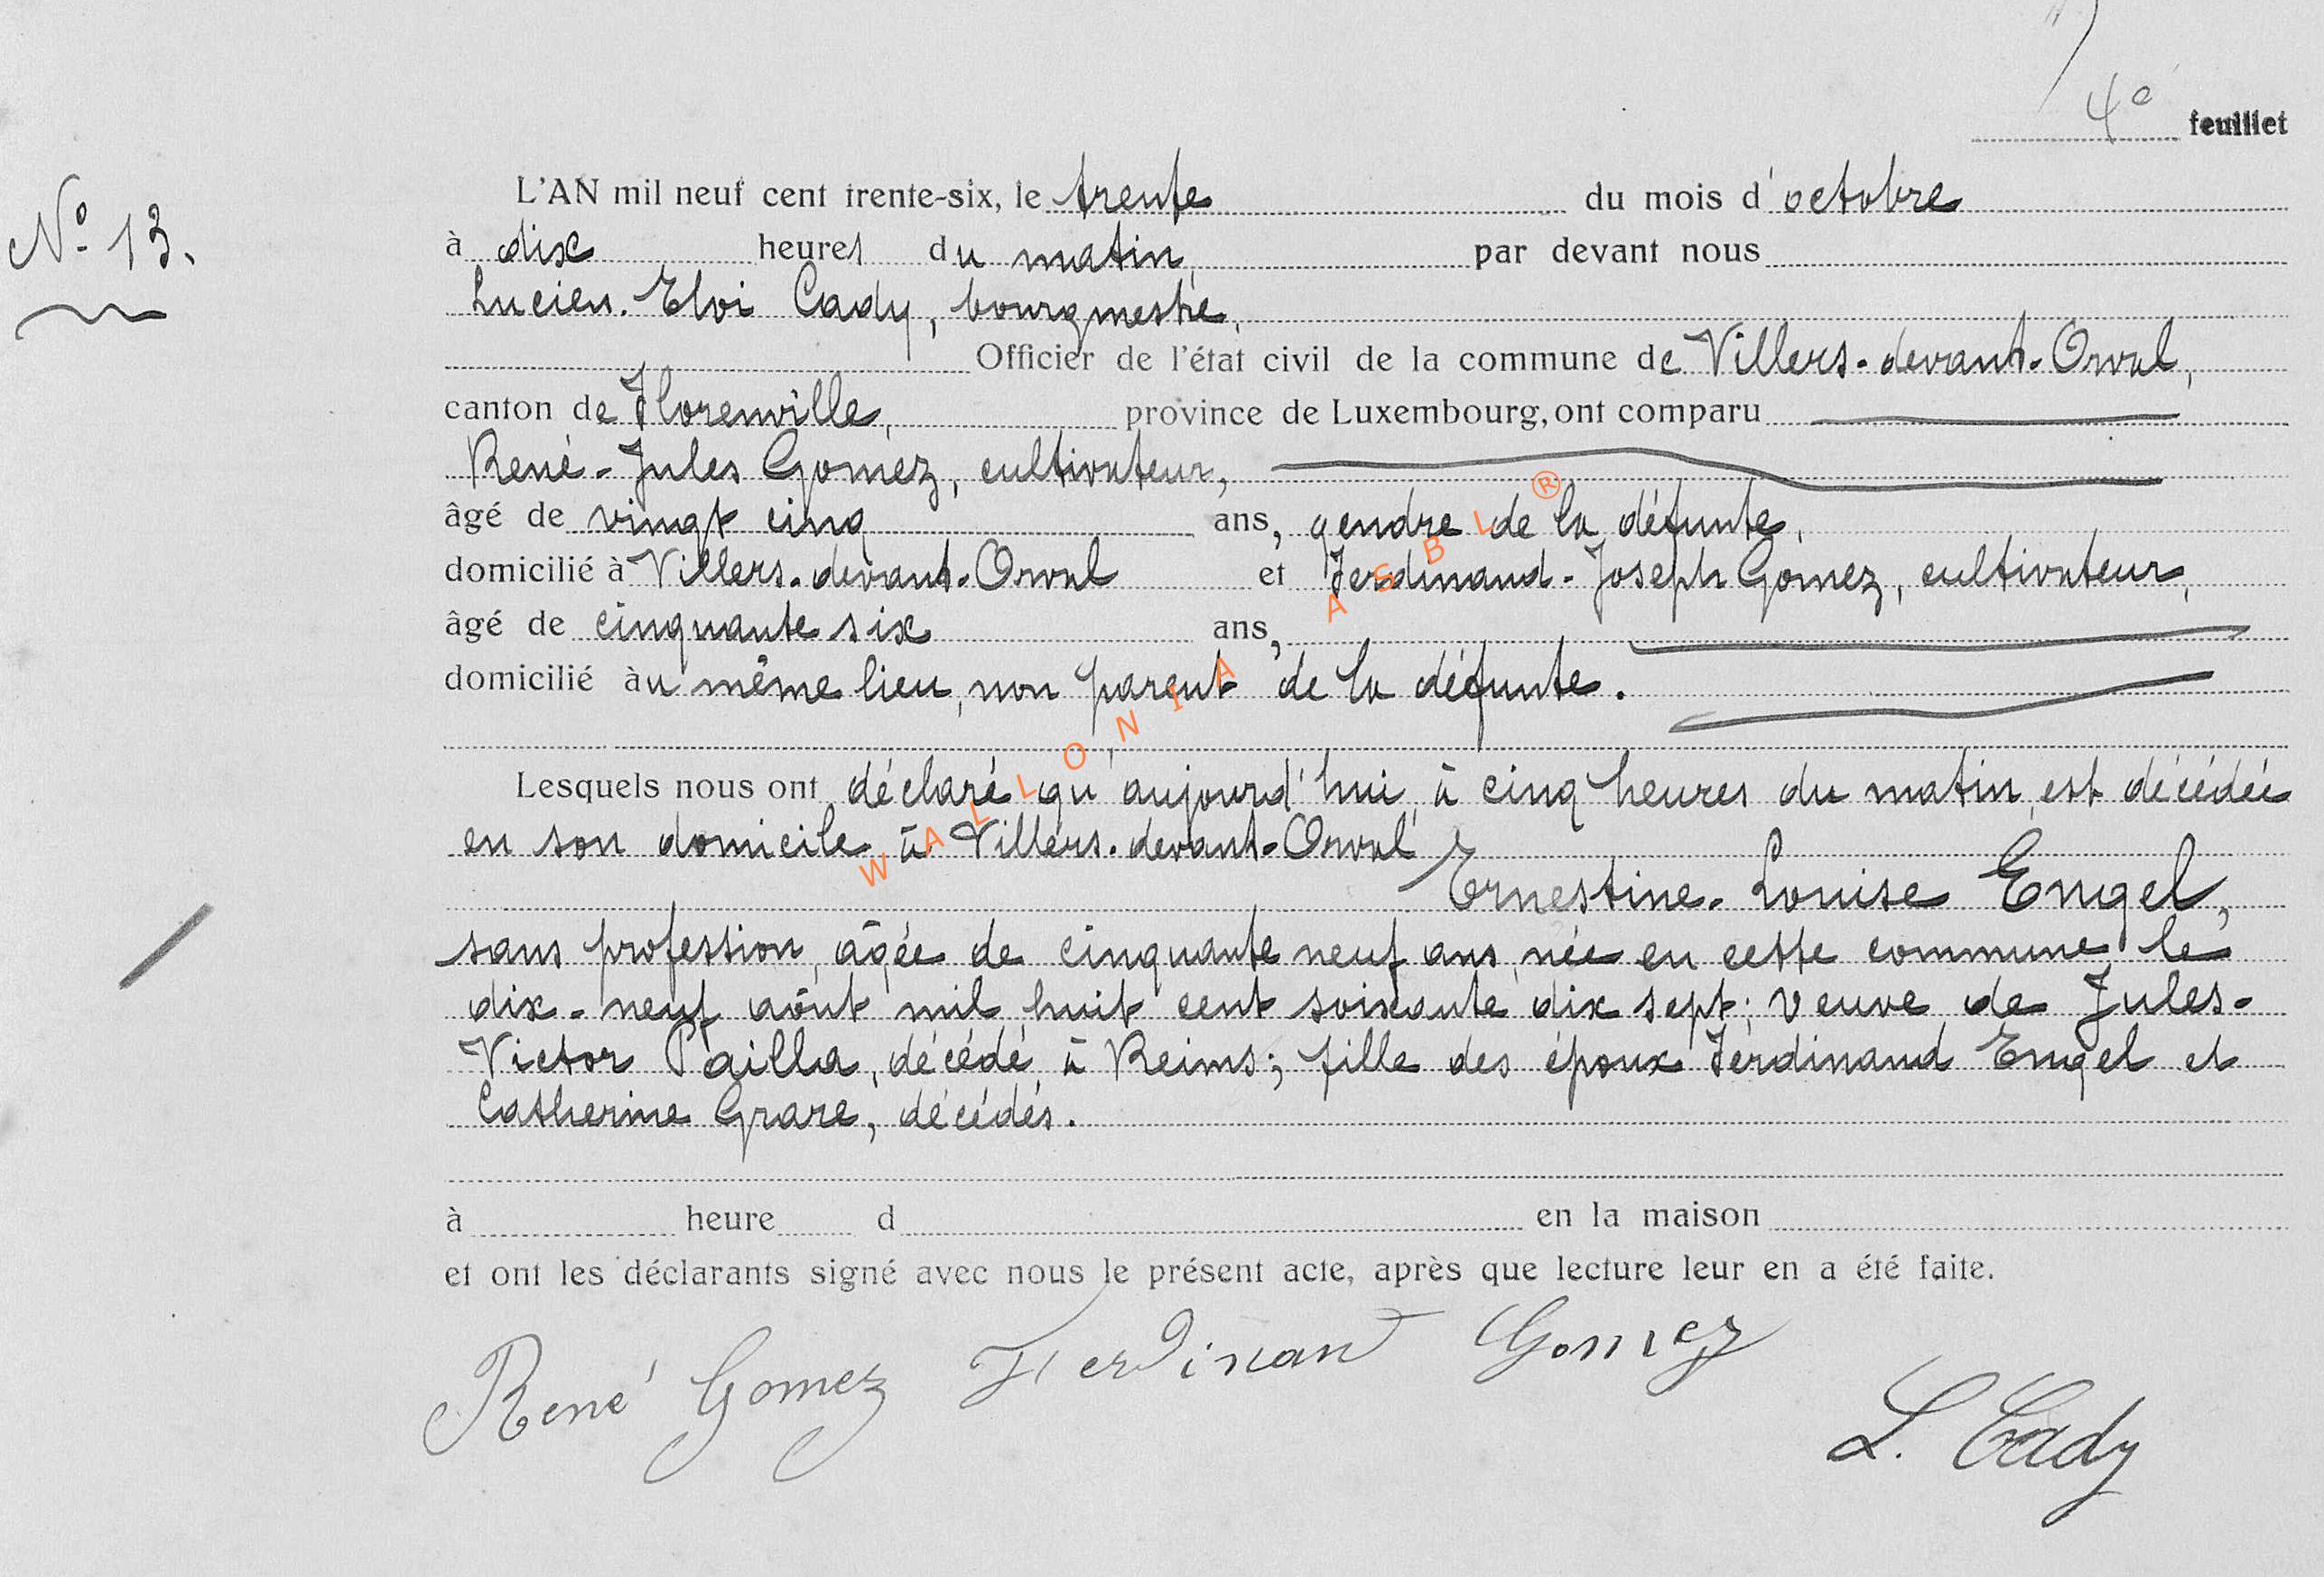 4e feuillet
No 13.
L'AN mil neuf cent trente-six, le trente du mois d'octobre
à dix heures du matin, par devant nous
Lucien-Eloi Cady, bourgmestre,
Officier de l'état civil de la commune de Villers-devant-Orval,
canton de Florenville, province de Luxembourg, ont comparu
René-Jules Gomez, cultivateur,
âgé de vingt cinq ans, gendre de la défunte,
domicilié à Villers-devant-Orval et Ferdinand-Joseph Gomez, cultivateur,
âgé de cinquante six ans,
domicilié au même lieu, non parent de la défunte.
Lesquels nous ont déclaré qu'aujourd'hui, à cinq heures du matin, est décédée
en son domicile à Villers-devant-Orval
Ernestine-Louise Engel,
sans profession, âgée de cinquante neuf ans, née en cette commune le
dix-neuf août mil huit cent soixante dix sept; veuve de Jules-
Victor Pailla, décédé à Reims; fille des époux Ferdinand Engel et
Catherine Grare, décédés.
à heure d en la maison
et ont les déclarants signé avec nous le présent acte, après que lecture leur en a été faite.
René Gomez Ferdinand Gomez
L. Cady
WALLONIA ASBL ®